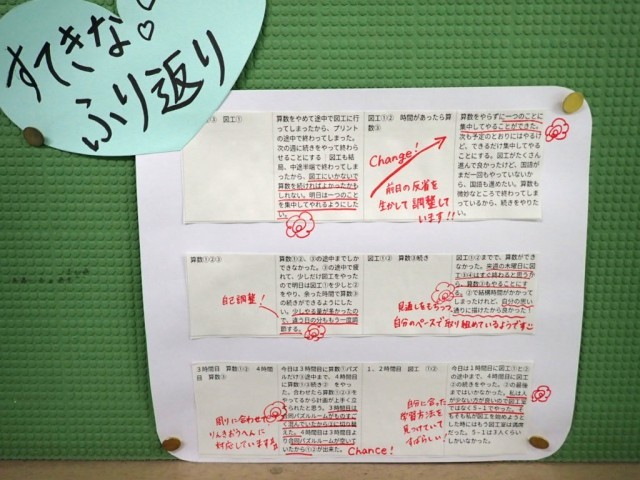 すてきな♡♡
ふり返り
③　図工①
算数をやめて途中で図工に
行ってしまったから、プリント
の途中で終わってしまった。
次の週に続きをやって終わら
せることにする　図工も結
局、中途半端で終わってしま
ったから、図工にいかないで
算数を続ければよかったかも
しれない。明日は一つのこと
を集中してやれるようにした
い。
図工①②　時間があったら算
数③
Change!
前日の反省を
生かして調整して
います!!
算数をやらずに一つのことに
集中してやることができた。
次も予定のとおりにはやるけ
ど、できるだけ集中してやる
ことにする。図工がたくさん
進んで良かったけど、国語が
まだ一回もやっていないか
ら、国語も進めたい。算数も
微妙なところで終わってしま
っているから、続きをやりた
い。
算数①②③
自己調整！
算数①②、③の途中までしか
できなかった。③の途中で疲
れて、少しだけ図工をやった
ので明日は図工①を少しと②
をやり、余った時間で算数③
の続きができるように調整し
たい。少しやる量が多かったので、
違う日の分ももう一度調
節する。
図工①②　算数③続き
見通しをもちつつ、
自分のペースで取り組めているようです
図工①②までで、算数がで
きなかった。来週の木曜日に図
工③④はすぐ終わると思うか
ら、算数③もやることにす
る。②で結構時間がかかって
しまったけれど、自分の思い
通りに描けたから良かった！
３時間目　算数①②　４時間
目　算数③
周りに合わせて
りんきおうへんに
対応しています!!
今日は３時間目に算数①パズ
ルだけ③途中まで、４時間目
に算数①③続き②　をやっ
た。合わせたら算数①②③を
やってるから計画が上手く立
てられたと思う。３時間目は
合同パズルルームがものすご
く混んでいたから③に切り替
えた。４時間目は３時間目よ
り合同パズルルームが空いて
いたから①②が出来た。
Chance!
１、２時間目　図工　①②
自分に合った
学習方法を
見つけていて
すばらしい！
今日は１時間目に図工①と②
の途中まで、４時間目に図工
②の続きをやった。②の最後
まではいかなかった。私は人
が少ない方が良いので図工室
ではなく５－１でやった。そ
もそも私が図工を始めようと
した時にはもう図工室は満席
だった。５－１は３人くらい
しかいなかった。